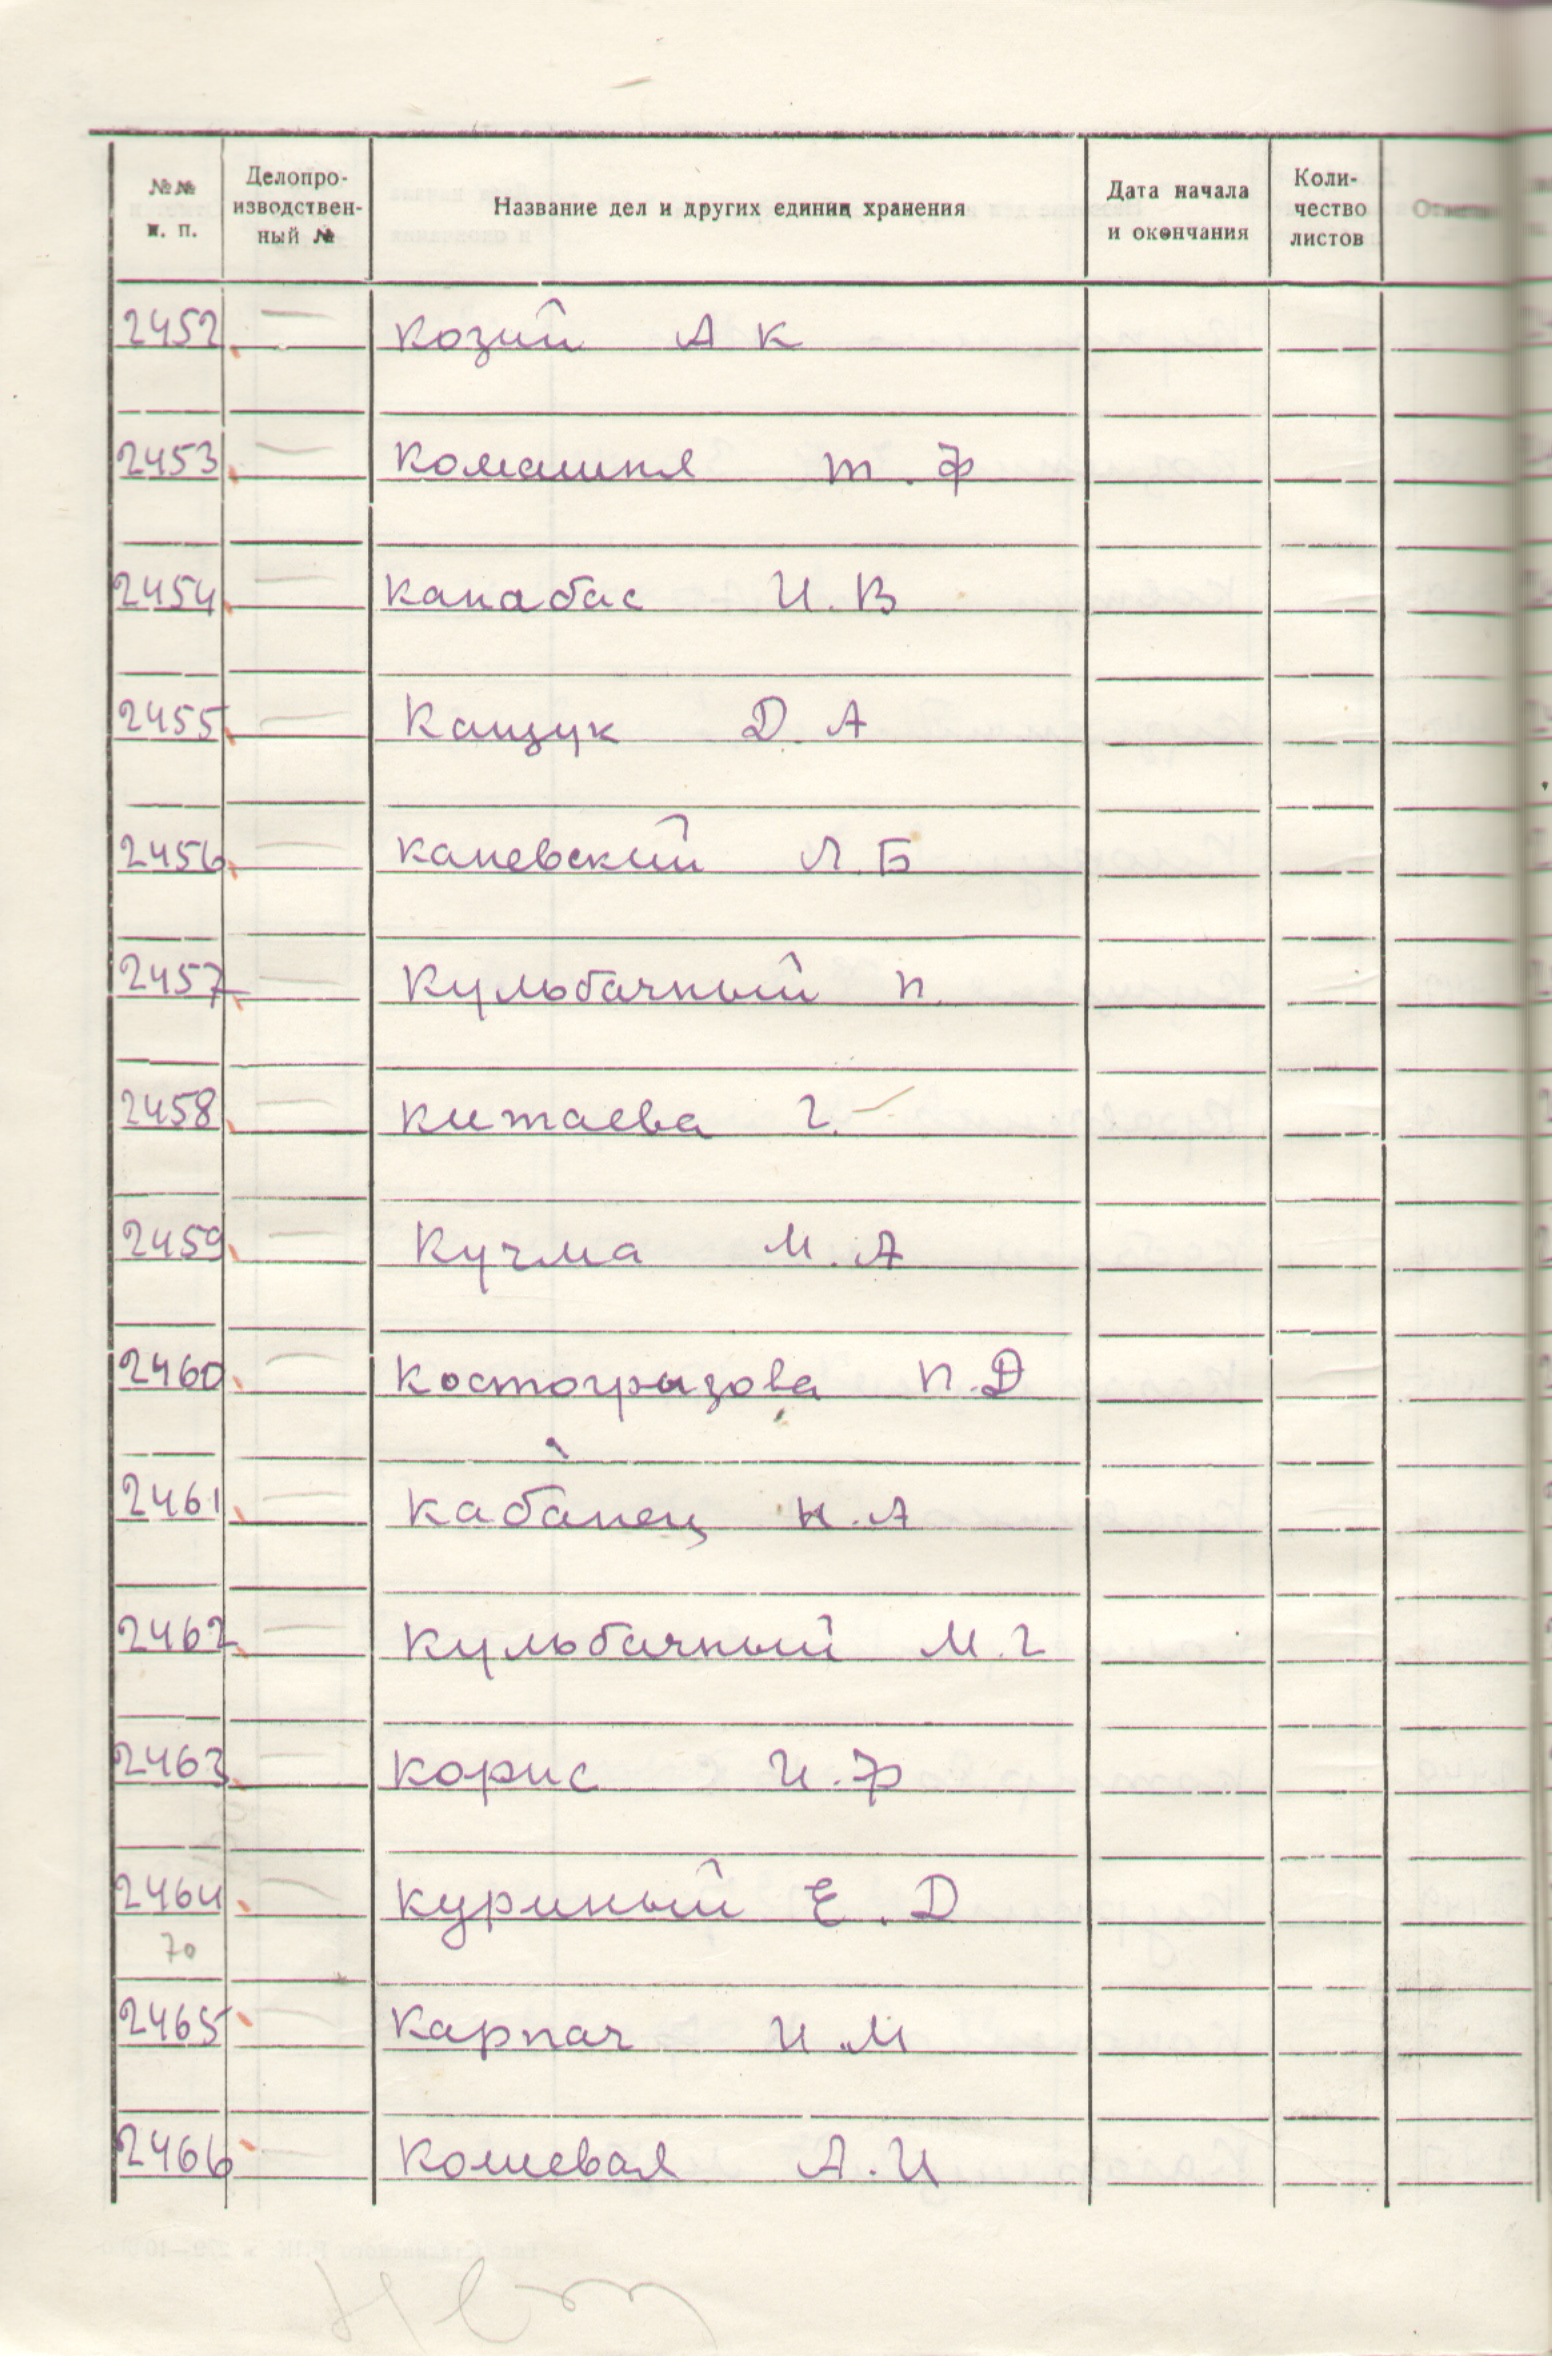 №№ п. п. Делопроизводственный № Название дел и других единиц хранения Дата начала и окончания Количество листов
2452 Козий А К
2453 Комашня Т. Ф
2454 Канабас И. В
2455 Кащук Д. А
2456 Каневский Л. Б
2457 Кульбачный П.
2458 Китаева Г.
2459 Кучма М. А
2460 Костогрызова П. Д
2461 Кабанец Н. А
2462 Кульбачный М. Г
2463 Корис И. Ф
2464 Куриный Е. Д
70
2465 Карпач И. М
2466 Кошевая А. И